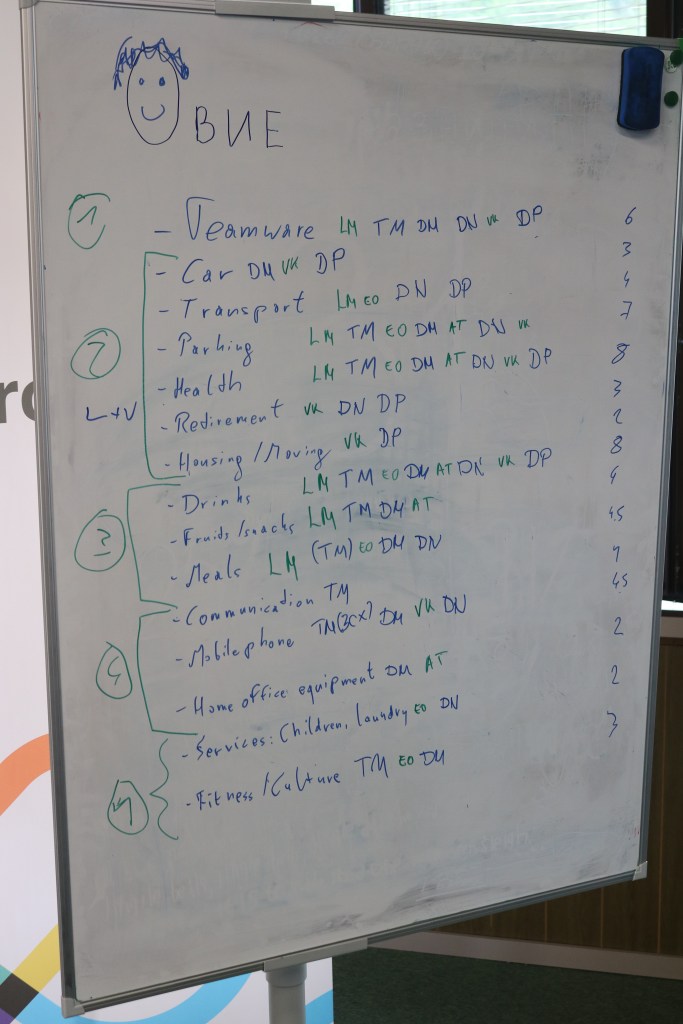 ВИЕ
1 - Teamware LM TM DM DN VK DP 6
- Car DM VK DP 3
- Transport LM EO DN DP 4
- Parking LM TM EO DM AT DN VK 7
2 - Health LM TM EO DM AT DN VK DP 8
L+V - Redirement VK DN DP 3
- Housing / Moving VK DP 2
- Drinks LM TM EO DM AT DN VK DP 8
- Fruids / snacks LM TM DM AT 4
3 - Meals LM (TM) EO DM DN 4.5
- Communication TM 1
- Mobile phone TM(3CX?) DM VK DN 4.5
- Home office equipment DM AT 2
- Services: Children, laundry EO DN 2
- Fitness / Culture TM EO DM 3